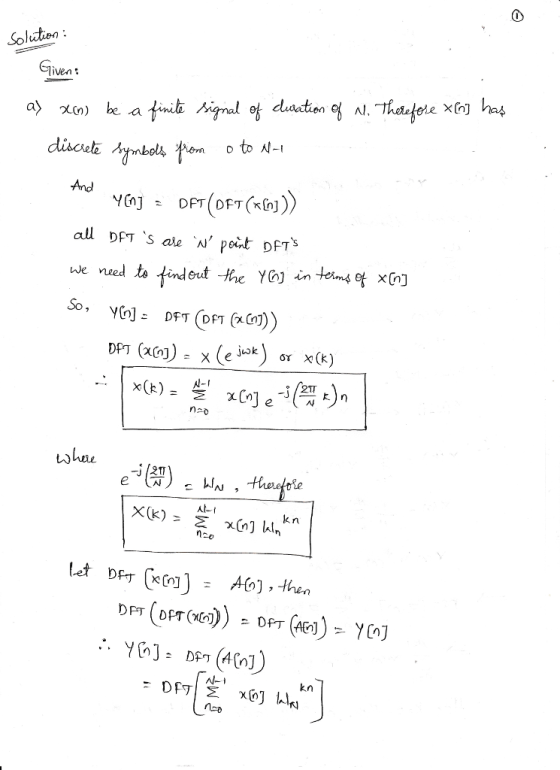 ①
Solution:
Given:
a) x(n) be a finite signal of duration of N. Therefore x[n] has
discrete symbols from 0 to N-1
And
Y[n] = DFT(DFT(x[n]))
all DFT's are 'N' point DFT's
we need to findout the Y[n] in terms of x[n]
So, Y[n] = DFT(DFT(x[n]))
DFT(x[n]) = x(e^{jωk}) or x(k)
∴ x(k) = \sum_{n=0}^{N-1} x[n] e^{-j(\frac{2π}{N}k)n}
where
e^{-j(\frac{2π}{N})} = W_N, therefore
X(k) = \sum_{n=0}^{N-1} x[n] W_n^{kn}
let DFT[x[n]] = A[n], then
DFT(DFT(x[n])) = DFT(A[n]) = Y[n]
∴ Y[n] = DFT(A[n])
= DFT[\sum_{n=0}^{N-1} x[n] W_N^{kn}]